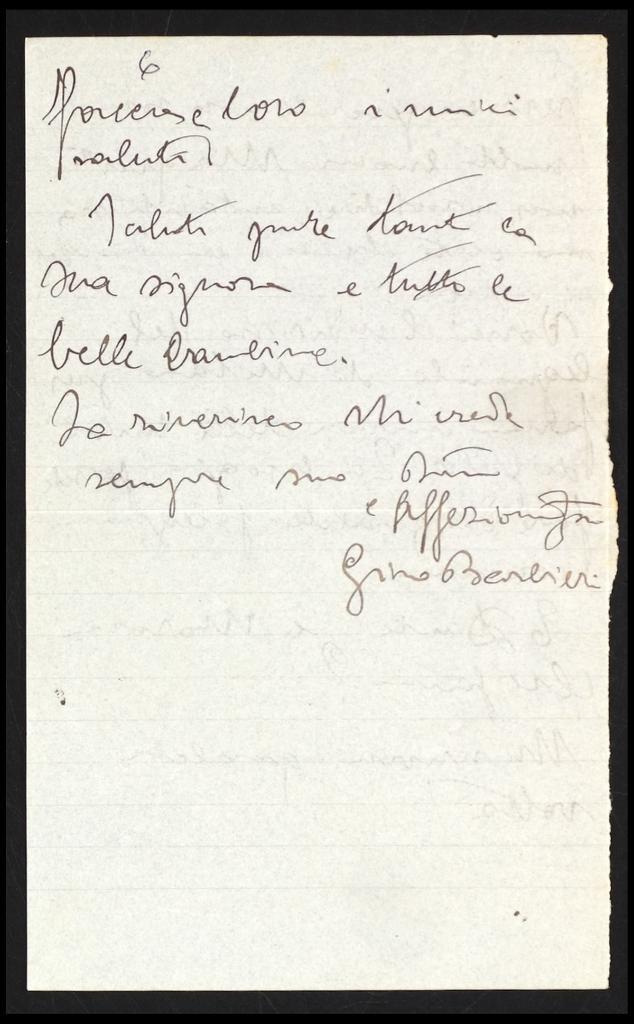 6
Porcera e loro i miei
saluti
Saluti pure tanti a
sua signora e tutte le
belle bambine.
La riverisco Mi creda
sempre suo
e affezion
Gino Barbieri